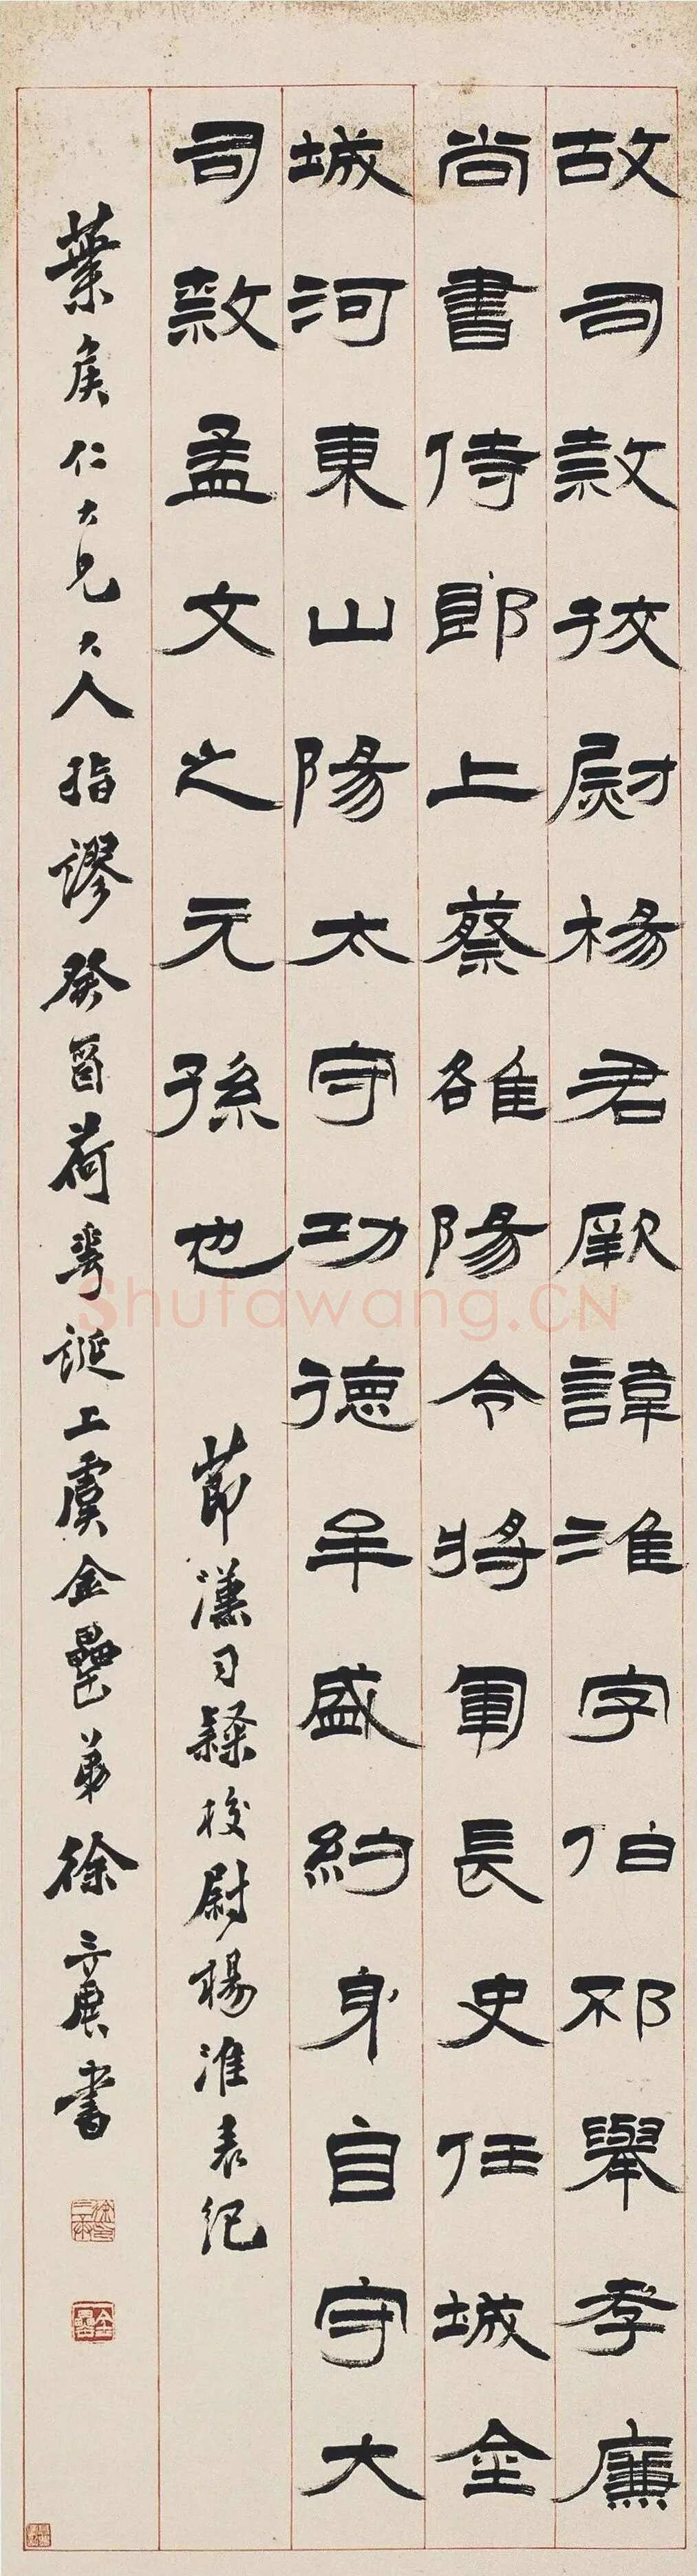 故司敹挍尉楊君厥諱淮字伯邳舉孝廉
尚書侍郎上蔡雒陽令將軍長史任城金
城河東山陽太守功德牟盛約身自守大
司敹孟文之元孫也
節漢司隸校尉楊淮表紀
葉侯仁大兄大人指謬癸酉荷華誕上虞金罍弟徐三庚書
Shufawang.CN